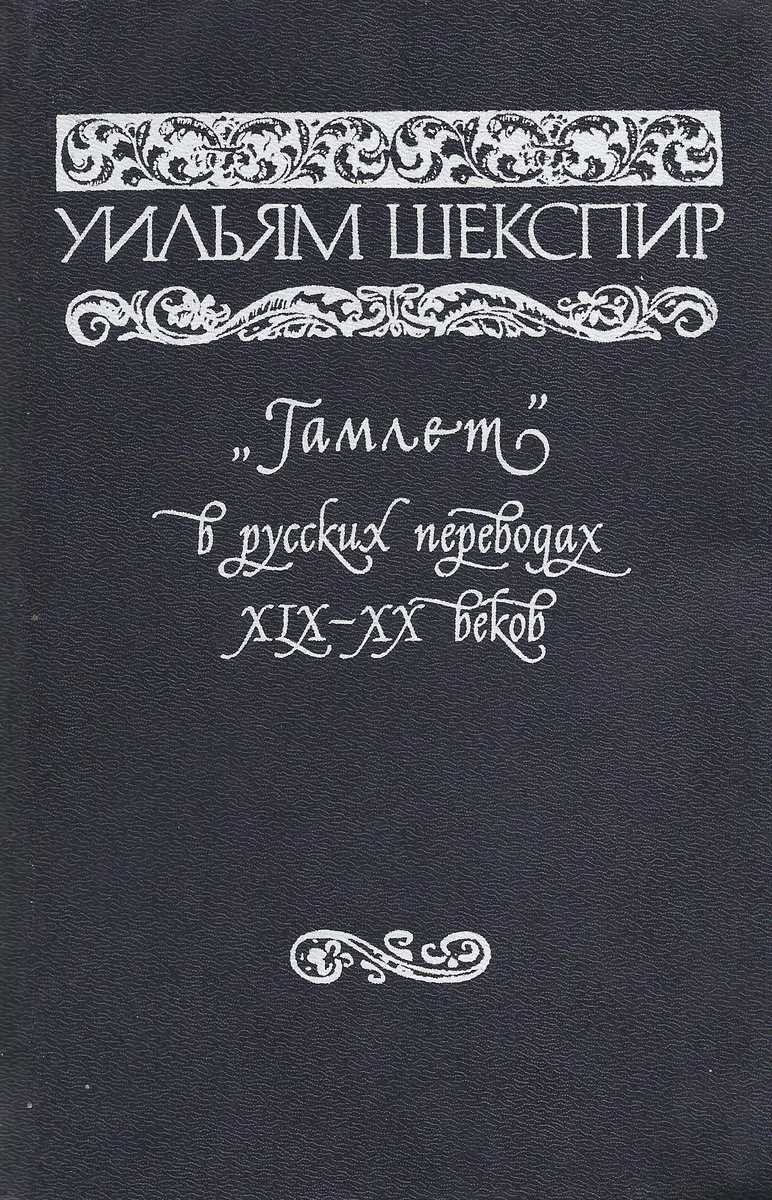 УИЛЬЯМ ШЕКСПИР
„Гамлет”
в русских переводах
XIX–XX веков